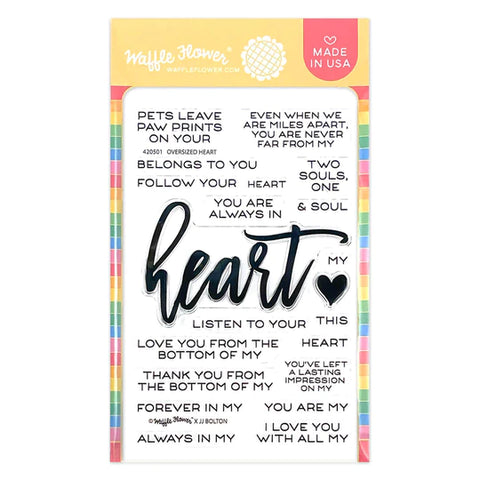 Waffle Flower
WAFFLEFLOWER.COM
MADE
IN USA
PETS LEAVE
PAW PRINTS
ON YOUR
EVEN WHEN WE
ARE MILES APART,
YOU ARE NEVER
FAR FROM MY
420501 OVERSIZED HEART
BELONGS TO YOU
TWO
SOULS,
ONE
FOLLOW YOUR
HEART
YOU ARE
ALWAYS IN
& SOUL
heart
MY
LISTEN TO YOUR
THIS
LOVE YOU FROM THE
BOTTOM OF MY
HEART
THANK YOU FROM
THE BOTTOM OF MY
YOU'VE LEFT
A LASTING
IMPRESSION
ON MY
FOREVER IN MY
YOU ARE MY
© Waffle Flower X JJ BOLTON
ALWAYS IN MY
I LOVE YOU
WITH ALL MY